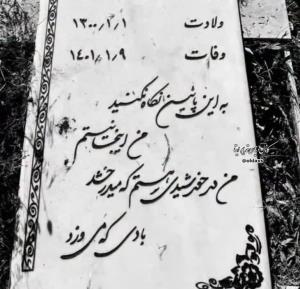 ولادت ۱۳۰۰/۱/۱
وفات ۱۴۰۱/۱/۹
به این پائین نگاه نکنید
من اینجا نیستم
من در خورشیدی هستم که میدرخشد
بادی که می وزد
@oldax